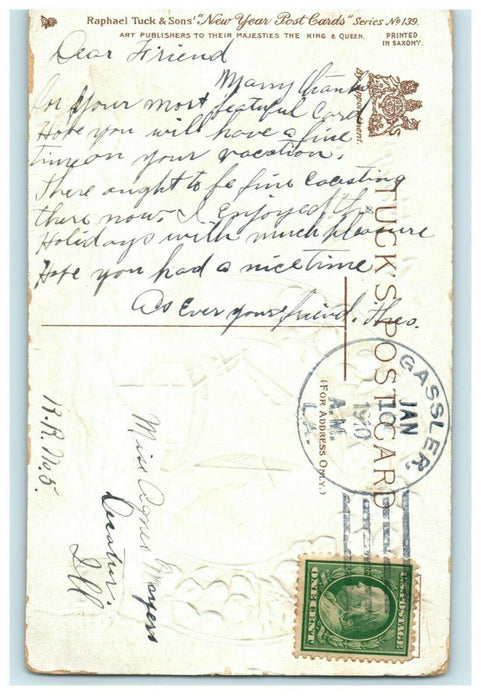 Raphael Tuck & Sons' "New Year Post Cards" Series No 139.
ART PUBLISHERS TO THEIR MAJESTIES THE KING & QUEEN.
PRINTED
IN SAXONY.
Dear Friend
Many thanks
for your most beatuful Card
Hope you will have a fine
time on your vacation.
There ought to be fine Coasting
there now. I Enjoyed the
Holidays with much pleasure
Hope you had a nice time
As Ever your friend. Theo.
By Appointment.
TUCK'S POST CARD
(FOR ADDRESS ONLY.)
GASSLER,
JAN
10
1910
A.M.
LA.
Miss Agnes Moyers
Decatur.
Ill
R.R. No. 5.
U.S. POSTAGE
ONE CENT